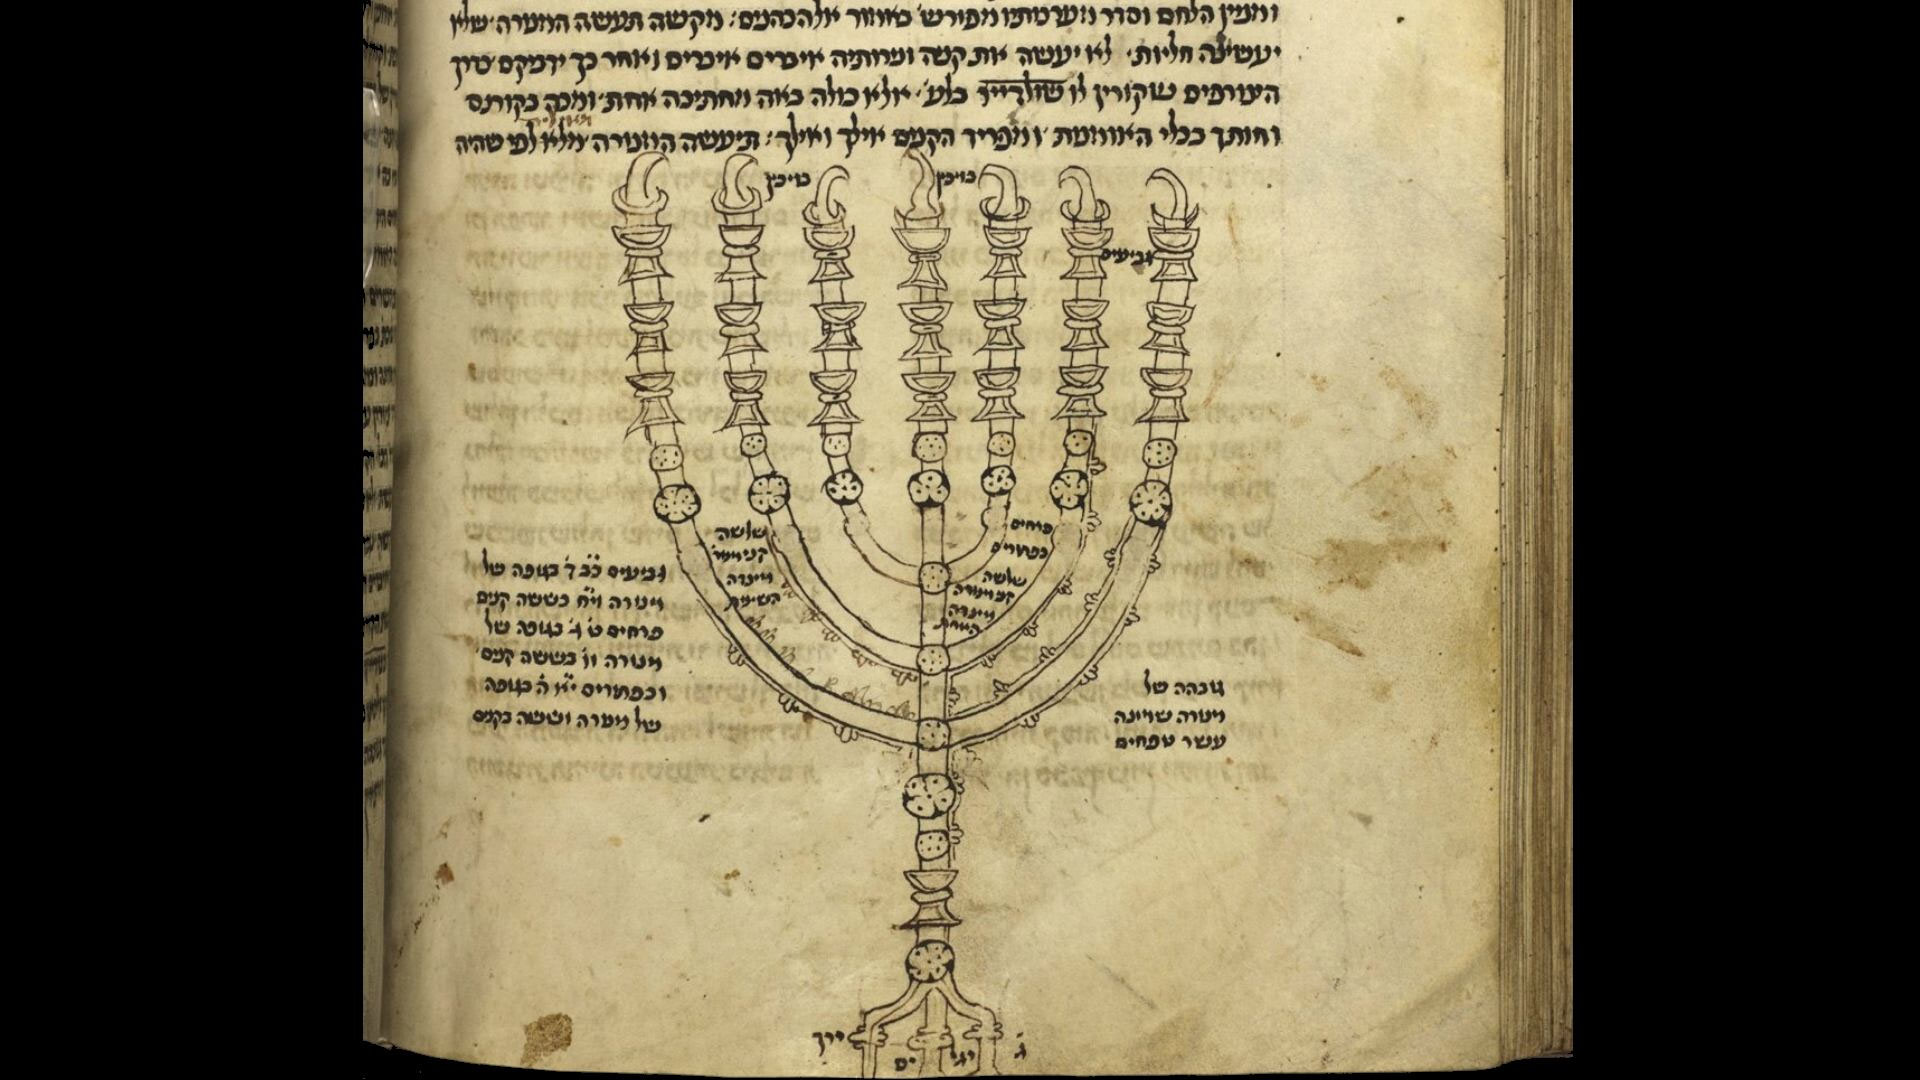 ומנין הלחם וסדר מערכתו מפורש כאמור
מקשה תעשה המנורה שלא
יעשנה חליות לא יעשה את קנה ונרותיה איברים איברים ואחר כך ידביקם כדרך
הצורפים שקורין לו שולדייר בלע אלא כולה באה מחתיכה אחת ומכה בקורנס
וחותך בכלי האומנות ומפריד הקנים אילך ואילך תיעשה המנורה מלא לפי שהיה
בזיכין
בזיכין
גביעים
שלשה
קני מנורה
מצדה
השינית
פרחים
כפתורים
שלשה
קני מנורה
מצדה
גביעים כב ד בגופה של
מנורה ויח בששה קנים
פרחים ט ג בגופה של
מנורה וו בששה קנים
וכפתורים יא ה בגופה
של מנורה וששה בקנים
גובהה של
מנורה שמונה
עשר טפחים
ירך
ג